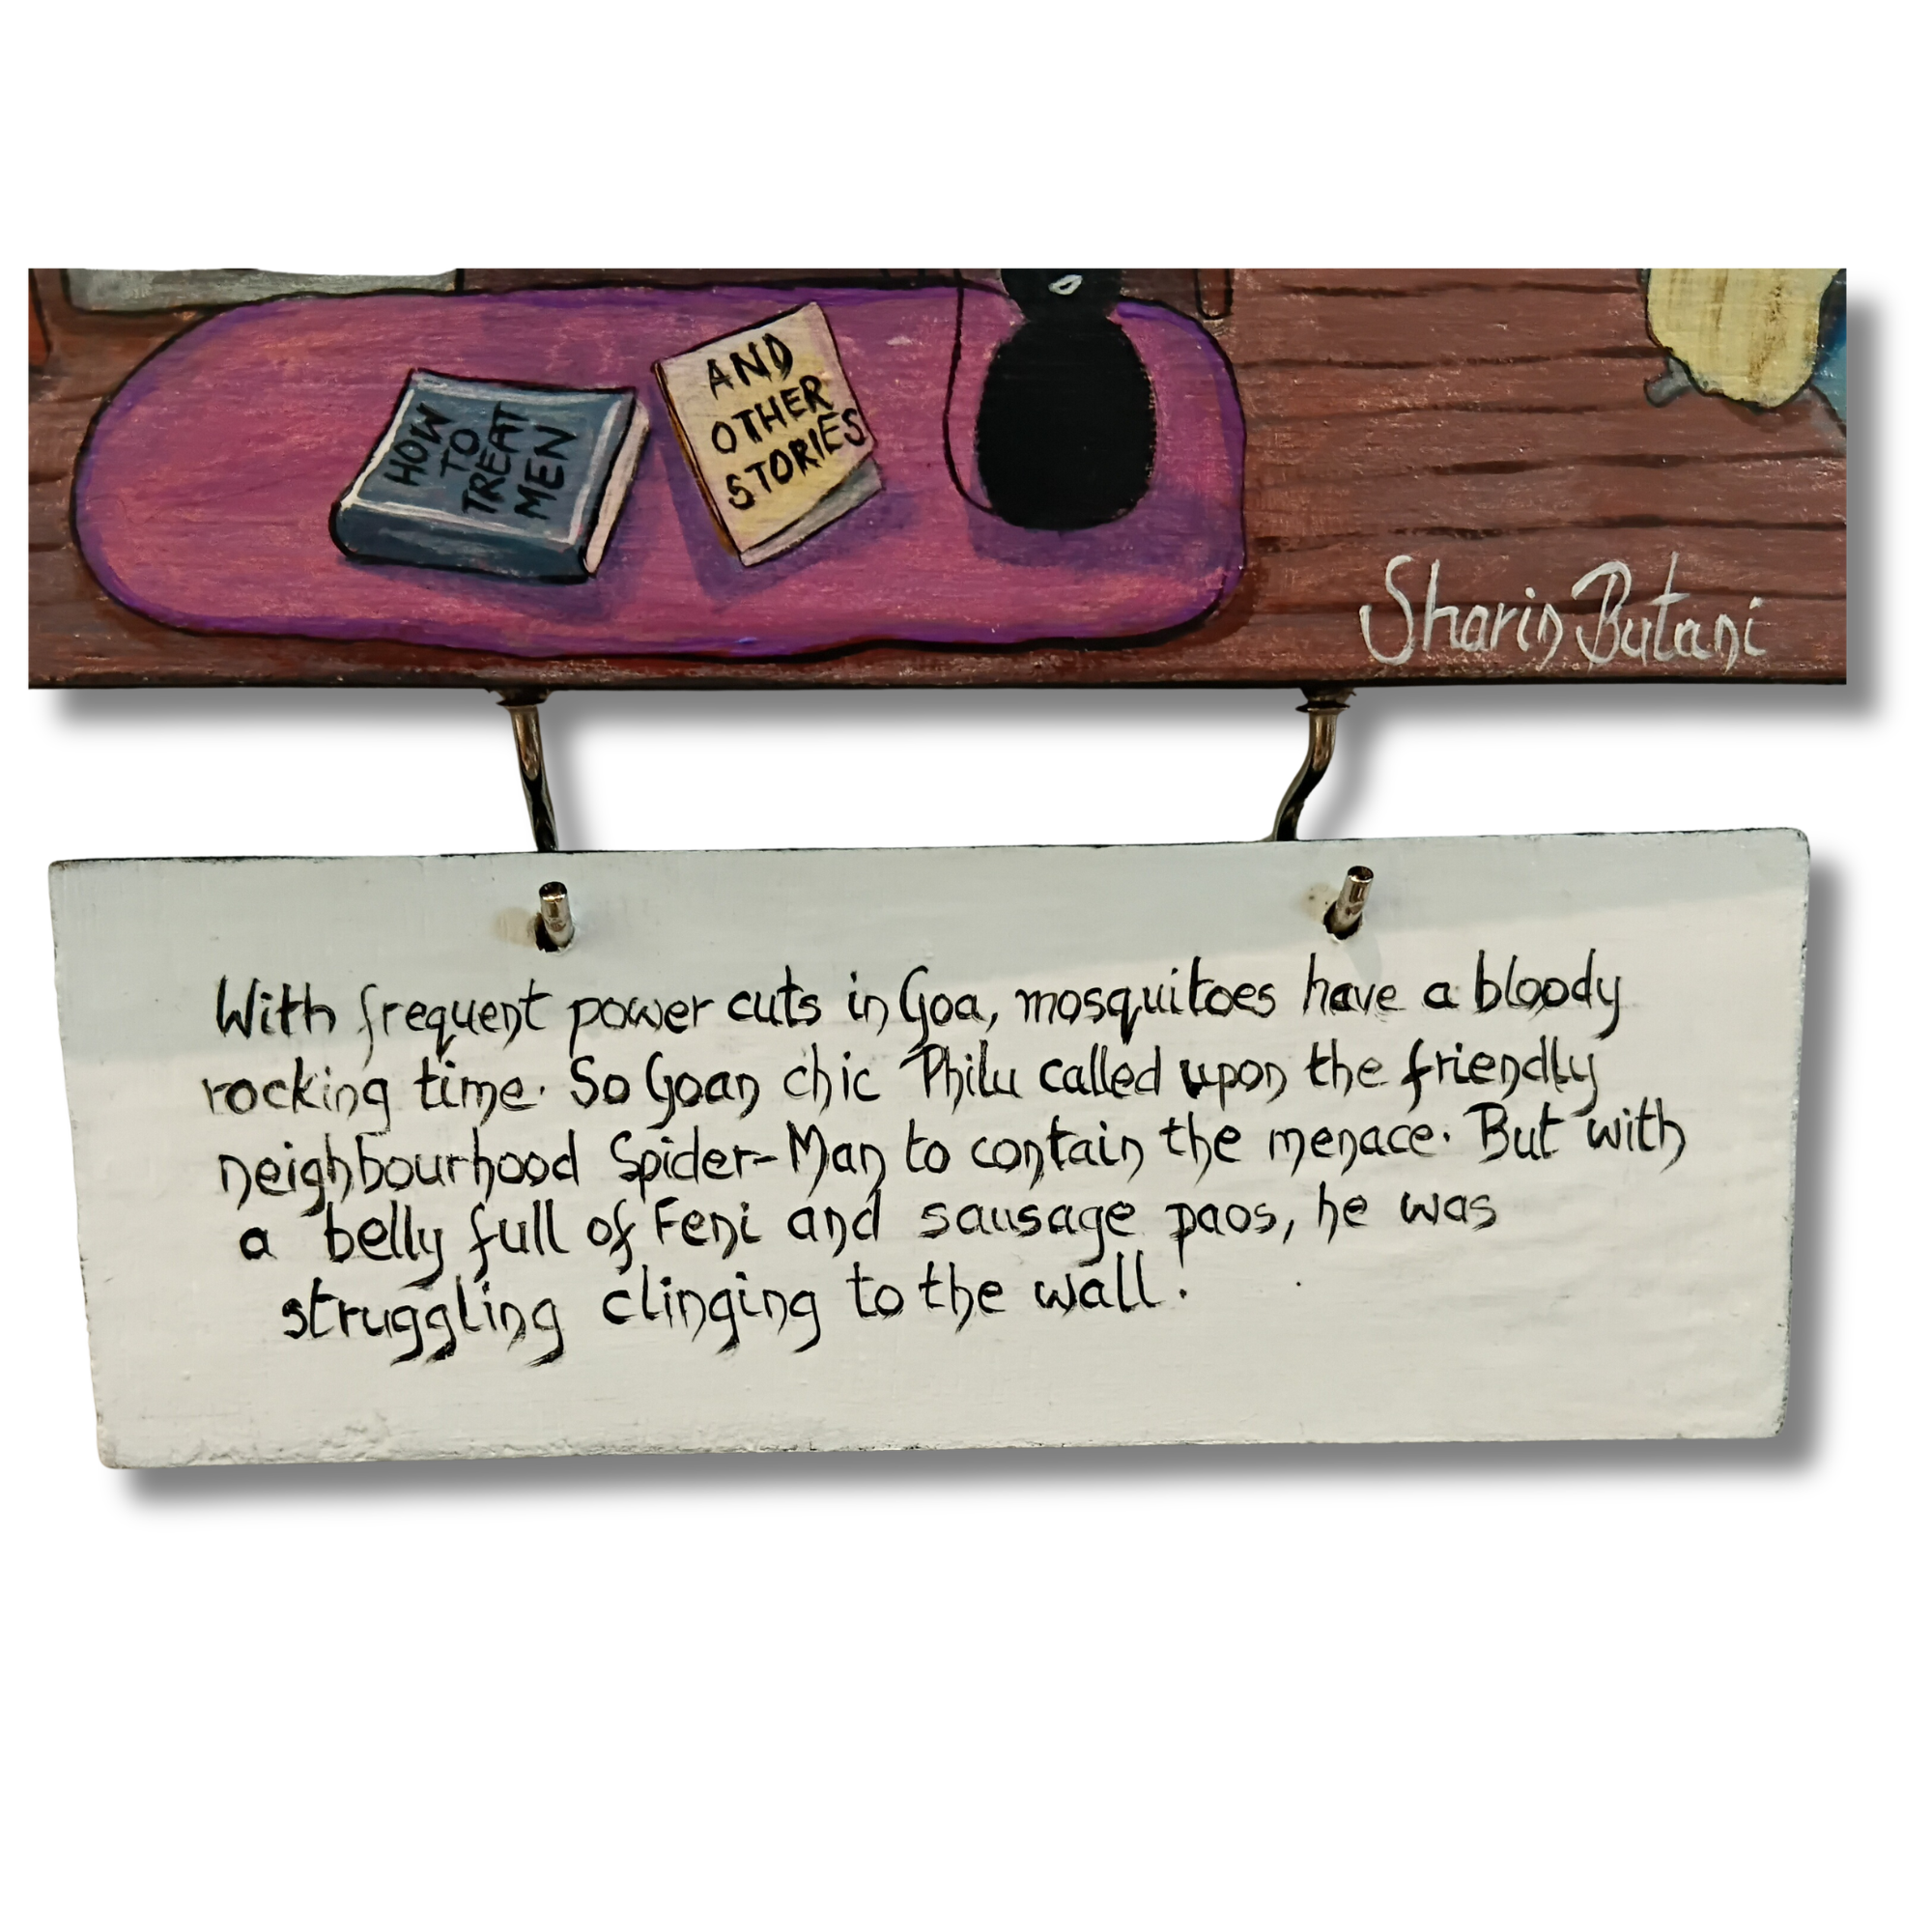 HOW
TO
TREAT
MEN
AND
OTHER
STORIES
Sharin Butani
With frequent power cuts in Goa, mosquitoes have a bloody
rocking time. So Goan chic Philu called upon the friendly
neighbourhood Spider-Man to contain the menace. But with
a belly full of Feni and sausage paos, he was
struggling clinging to the wall!